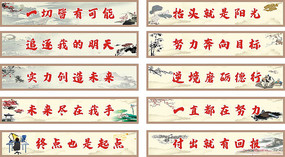 一切皆有可能
抬头就是阳光
追逐我的明天
努力奔向目标
实力创造未来
逆境磨砺德行
未来尽在我手
一直都在努力
终点也是起点
付出就有回报